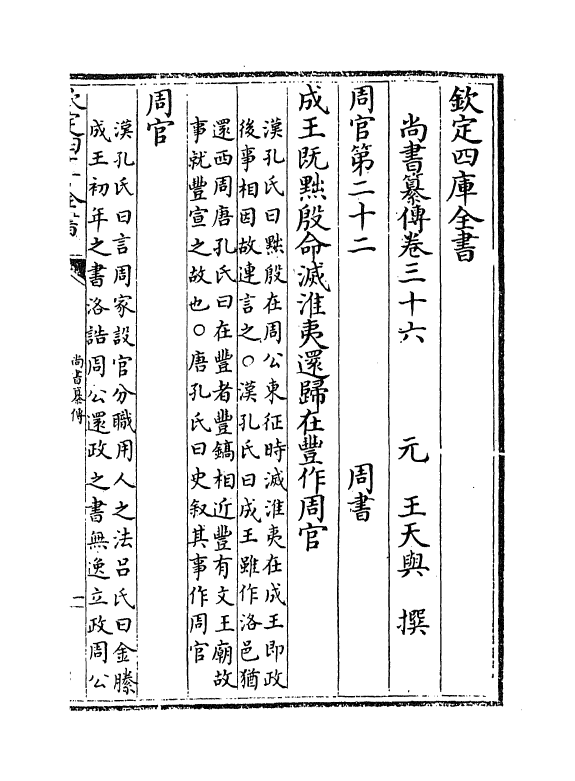 欽定四庫全書
尚書纂傳卷三十六　元　王天與　撰
周官第二十二　周書
成王既黜殷命滅淮夷還歸在豐作周官
漢孔氏曰黜殷在周公東征時滅淮夷在成王即政
後事相因故連言之○漢孔氏曰成王雖作洛邑猶
還西周唐孔氏曰在豐者豐鎬相近豐有文王廟故
事就豐宣之故也○唐孔氏曰史叙其事作周官
周官
漢孔氏曰言周家設官分職用人之法吕氏曰金縢
成王初年之書洛誥周公還政之書無逸立政周公
欽定四庫全書
尚書纂傳
一